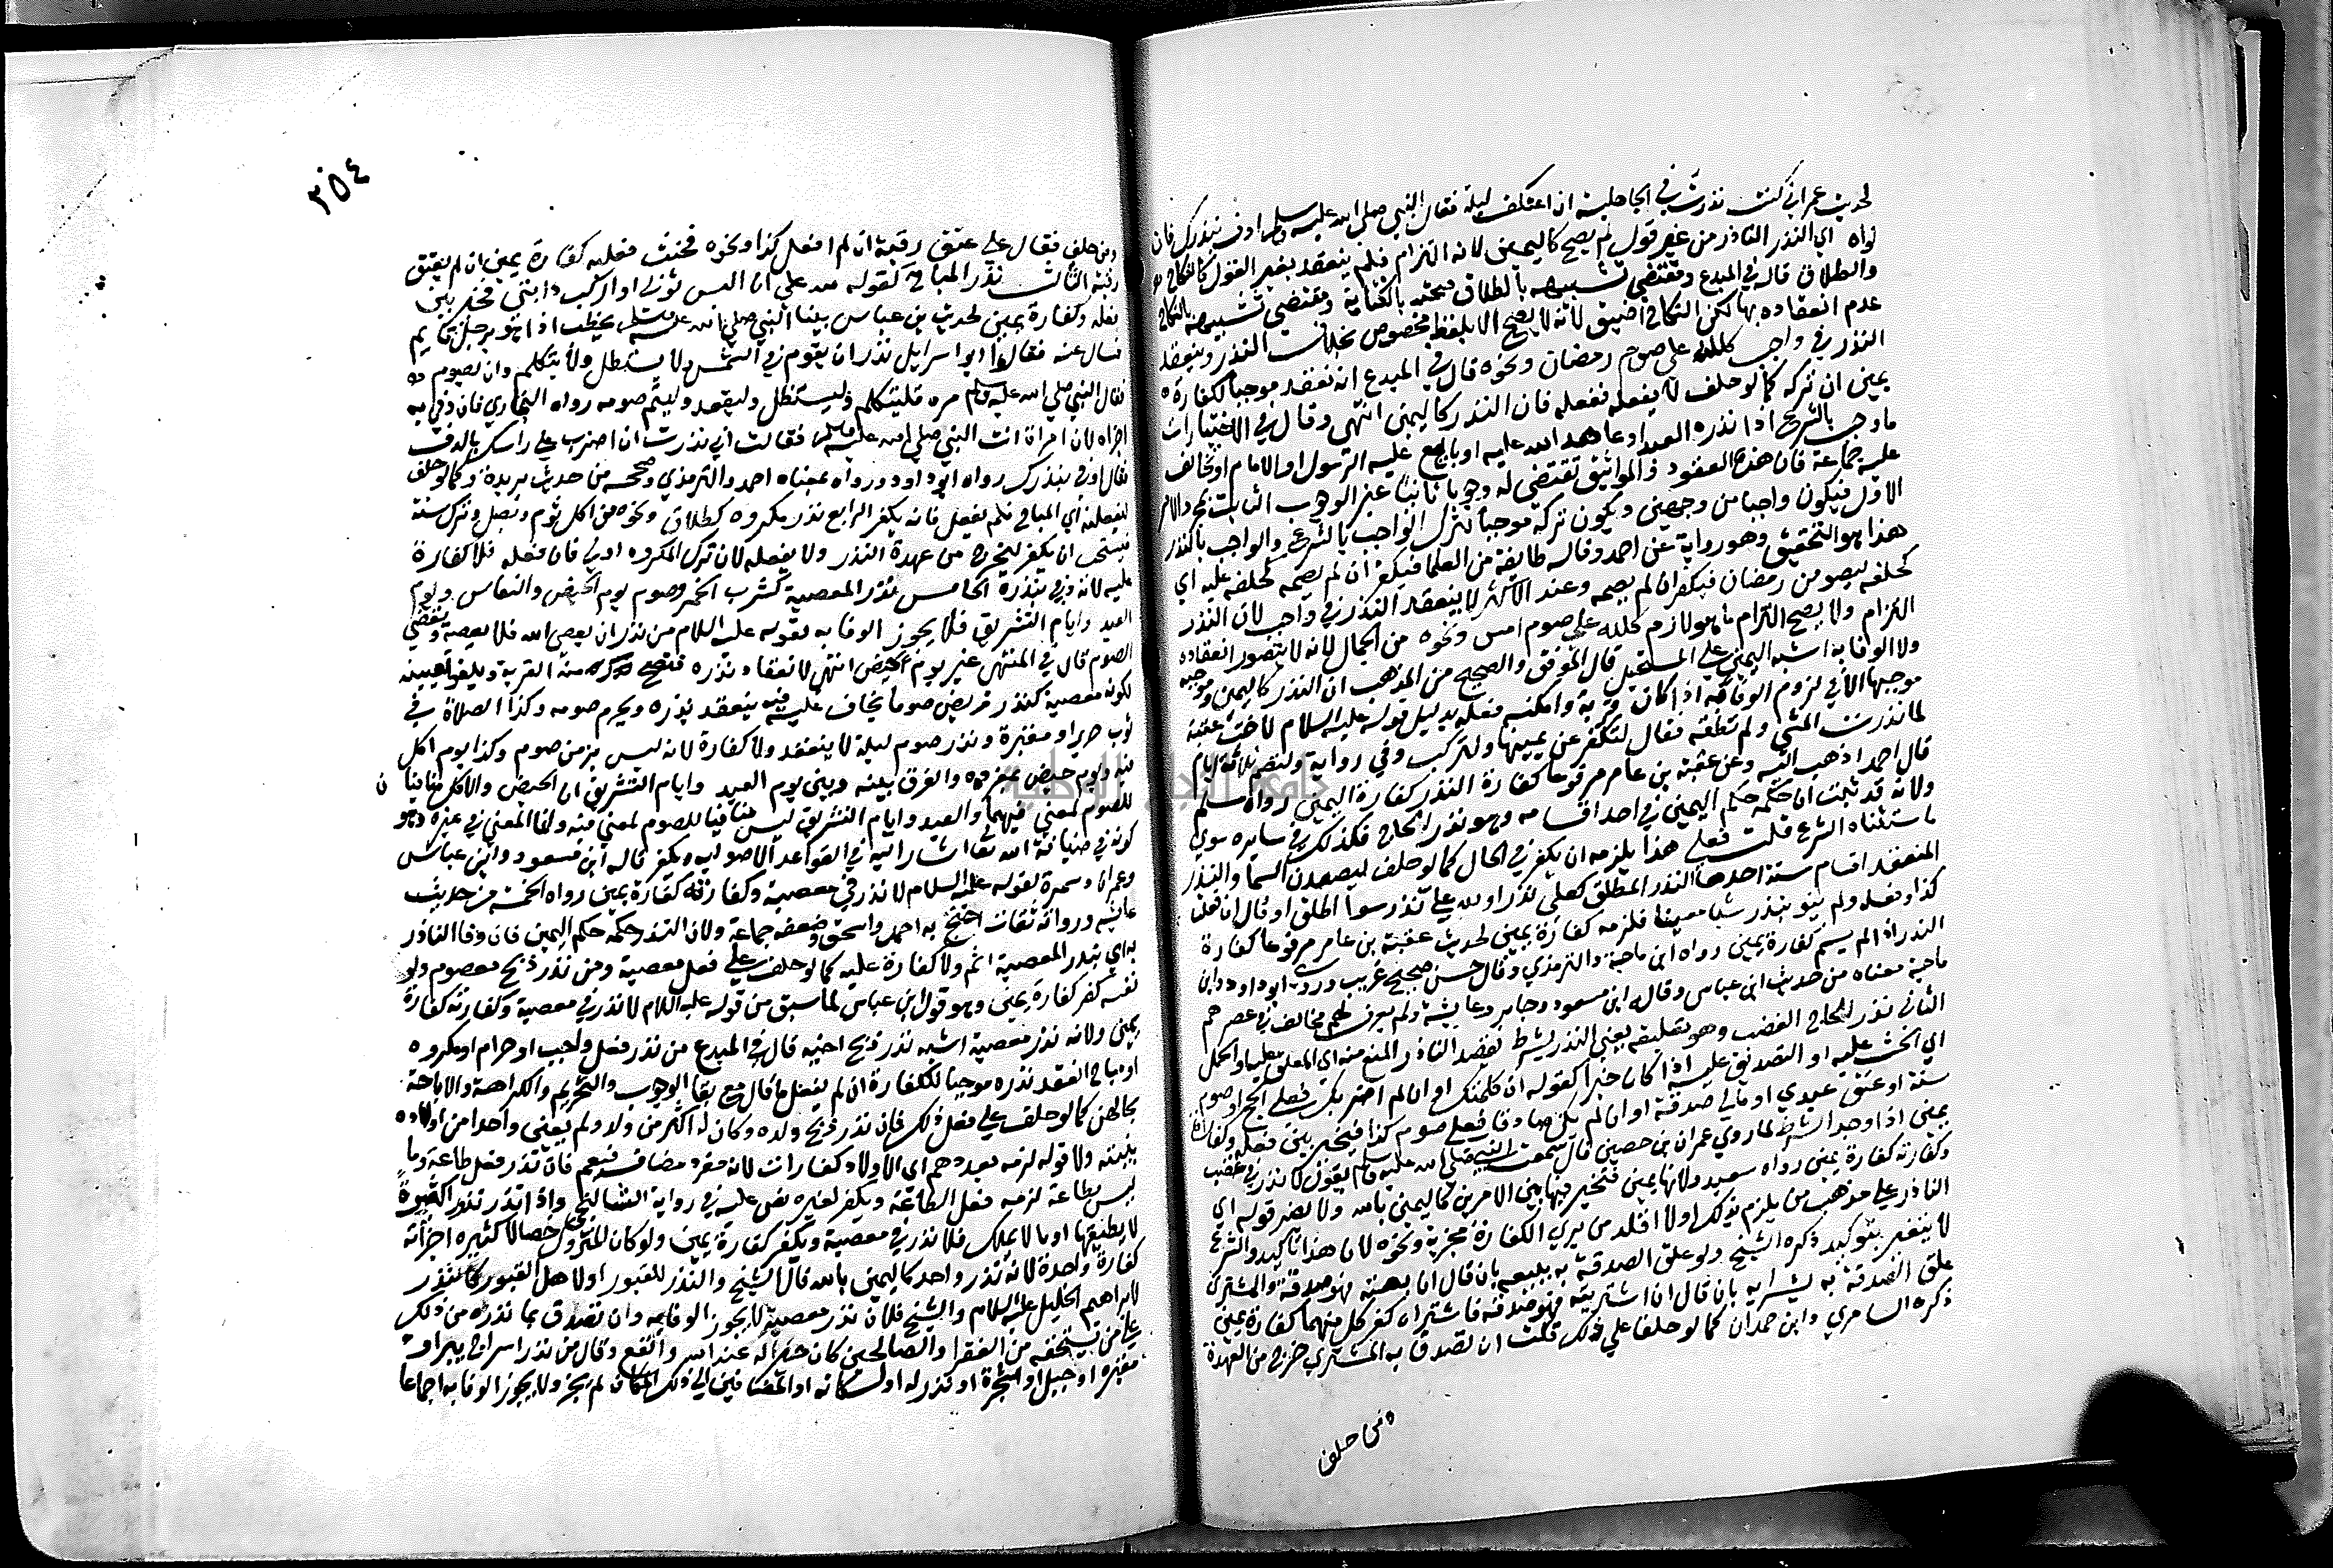 لحديث عمر اني كنت نذرت في الجاهلية ان اعتكف ليلة فقال النبي صلى الله عليه وسلم اوف بنذرك فان
نواه اي النذر الناذر من غير قول لم يصح كاليمين لانه التزام فلم ينعقد بغير القول كالنكاح
والطلاق قال في المبدع ومقتضى تشبيهه بالطلاق صحته بالكناية ومقتضى تشبيهه بالنكاح
عدم انعقاده بها لكن النكاح اضيق لانه لا يصح الا بلفظ مخصوص بخلاف النذر وينعقد
النذر في واجب كلله علي صوم رمضان ونحوه قال في المبدع انه تنعقد موجبا لكفارة
يمين ان تركه كما لو حلف لا يفعله ففعله فان النذر كاليمين انتهى وقال في الاختيارات
ما وجب بالشرع اذا نذره العبد او عاهد الله عليه او بايع عليه الرسول او الامام او تحالف
عليه جماعة فان هذه العقود والمواثيق تقتضي له وجوبا ثانيا غير الوجوب الثابت بمجرد الامر
الاول فيكون واجبا من وجهين ويكون تركه موجبا لترك الواجب بالشرع والواجب بالنذر
هذا هو التحقيق وهو رواية عن احمد وقاله طايفة من العلما فيكفر ان لم يصمه كحلفه عليه اي
كحلفه ليصومن رمضان فيكفر ان لم يصمه وعند الاكثر لا ينعقد النذر في واجب لان النذر
التزام ولا يصح التزام ما هو لازم كلله علي صوم امس ونحوه من المحال لانه لا يتصور انعقاده
ولا الوفا به اشبه اليمين على المستحيل قال الموفق والصحيح من المذهب ان النذر كاليمين وموجبه
موجبها الا في لزوم الوفا به اذا كان قربة وامكنه فعله بدليل قوله عليه السلام لاخت عقبة
لما نذرت المشي ولم تطقه فقال لتكفر عن يمينها ولتركب وفي رواية ولتصم ثلاثة ايام
قال احمد اذهب اليه وعن عقبة بن عامر مرفوعا كفارة النذر كفارة اليمين رواه مسلم
ولانه قد ثبت ان حكمه حكم اليمين في احد اقسامه وهو نذر اللجاج فكذلك في سايره سوى
ما استثناه الشرع قلت فعلى هذا يلزمه ان يكفر في الحال كما لو حلف ليصعدن السما والنذر
المنعقد اقسام ستة احدها النذر المطلق كعلي نذر او لله علي نذر سوا اطلق او قال ان فعلت
كذا وفعله ولم ينو بنذر شيا معينا فلزمه كفارة يمين لحديث عقبة بن عامر مرفوعا كفارة
النذر اذا لم يسم كفارة يمين رواه ابن ماجة والترمذي وقال حسن صحيح غريب وروى ابو داود وابن
ماجة معناه من حديث ابن عباس وقاله ابن مسعود وجابر وعايشة ولم يعرف لهم مخالف في عصرهم
الثاني نذر اللجاج الغضب وهو تعليقه يعني النذر بشرط بقصد الناذر المنع منه اي المعلق عليه او الحمل
اي الحث عليه او التصديق عليه اذا كان خبرا كقوله ان كلمتك او ان لم اخبر بك فعلي الحج او صوم
سنة او عتق عبدي او مالي صدقة او ان لم يكن صادقا فعلي صوم كذا فيخير بين فعله وكفارة
يمين اذا وجد الشرط لما روى عمران بن حصين قال سمعت النبي صلى الله عليه وسلم يقول لا نذر في غضب
وكفارته كفارة يمين رواه سعيد ولانها يمين فتخير فيها بين الامرين كاليمين بالله ولا يضر قوله اي
الناذر على مذهب من يلزم بذلك او لا اقلد من يرى الكفارة مجزية ونحوه لان هذا تاكيد والشرع
لا يتغير بتوكيد ذكره الشيخ ولو علق الصدقة به ببيعه بان قال ان بعته فهو صدقة والمشتري
علق الصدقة به بشرايه بان قال ان اشتريته فهو صدقة فاشتراه كفر كل منهما كفارة يمين
ذكره السامري وابن حمدان كما لو حلفا على ذلك قلت ان تصدق به المشتري خرج من العهدة
ومن حلف
٣٥٤
ومن حلف فقال علي عتق رقبة ان لم افعل كذا ونحوه فحنث فعليه كفارة يمين ان لم يعتق
رقبة الثالث نذر المباح كقوله لله علي ان البس ثوبي او اركب دابتي فيخير بين
فعله وكفارة يمين لحديث بن عباس بينا النبي صلى الله عليه وسلم يخطب اذا هو برجل قايم
فسال عنه فقالوا ابو اسرايل نذر ان يقوم في الشمس ولا يستظل ولا يتكلم وان يصوم
فقال النبي صلى الله عليه وسلم مره فليتكلم وليستظل وليقعد وليتم صومه رواه البخاري فان وفى به
اجزاه لان امراة اتت النبي صلى الله عليه وسلم فقالت اني نذرت ان اضرب على راسك بالدف
فقال اوفي بنذرك رواه ابو داود ورواه بمعناه احمد والترمذي وصححه من حديث بريدة وكما لو حلف
ليفعلنه اي المباح فلم يفعل فانه يكفر الرابع نذر مكروه كطلاق ونحوه من اكل ثوم وبصل وترك سنة
فيستحب ان يكفر ليخرج من عهدة النذر ولا يفعله لان ترك المكروه اولى فان فعله فلا كفارة
عليه لانه وفى بنذره الخامس نذر المعصية كشرب الخمر وصوم يوم الحيض والنفاس ويوم
العيد وايام التشريق فلا يجوز الوفا به لقوله عليه السلام من نذر ان يعصي الله فلا يعصه ويقضي
الصوم قال في المنتهى غير يوم الحيض انتهى لانعقاد نذره فتصح منه القربة ويلغو تعيينه
لكونه معصية كنذر مريض صوما يخاف عليه فيه ينعقد نذره ويحرم صومه وكذا الصلاة في
ثوب حرير او مقبرة ونذر صوم ليلة لا ينعقد ولا كفارة لانه ليس بزمن صوم وكذا يوم اكل
فيه ويوم حيض بمفرده والفرق بينه وبين يوم العيد وايام التشريق ان الحيض والاكل منافيان
للصوم لمعنى فيهما والعيد وايام التشريق ليس منافيا للصوم لمعنى فيه وانما المعنى في غيره وهو
كونه في ضيافة الله تعا اشار اليه في القواعد الاصوليه ويكفر قاله ابن مسعود وابن عباس
وعمران وسمرة لقوله عليه السلام لا نذر في معصية وكفارته كفارة يمين رواه الخمسة من حديث
عايشه ورواته ثقات احتج به احمد واسحق وضعفه جماعة ولان النذر حكمه حكم اليمين فان وفا الناذر
به اي بنذر المعصية اثم ولا كفارة عليه كما لو حلف على فعل معصية ومن نذر ذبح معصوم ولو
نفسه كفر كفارة يمين وهو قول ابن عباس لما سبق من قوله عليه السلام لا نذر في معصية وكفارته كفارة
يمين ولانه نذر معصية اشبه نذر ذبح اخيه قال في المبدع من نذر فعل واجب او حرام او مكروه
او مباح انعقد نذره موجبا للكفارة ان لم يفعل ما قال مع بقا الوجوب والتحريم والكراهة والاباحة
بحالهن كما لو حلف على فعل ذلك فان نذر ذبح ولده وكان له اكثر من ولد ولم يعين واحدا من اولاده
بنيته ولا قوله لزمه بعددهم اي الاولاد كفارات لانه مفرد مضاف فيعم فان نذر فعل طاعة وما
ليس بطاعة لزمه فعل الطاعة ويكفر لغيره نص عليه في رواية الشالنجي واذا نذر
لا يطيقها او ما لا يملك فلا نذر في معصية ويكفر كفارة يمين ولو كان المتروك خصالا كثيره اجزاته
كفارة واحدة لانه نذر واحد كاليمين بالله قال الشيخ والنذر للقبور او لاهل القبور كالنذر
لابراهيم الخليل عليه السلام والشيخ فلان نذر معصية لا يجوز الوفا به وان تصدق بما نذره من ذلك
على من يستحقه من الفقرا والصالحين كان خيرا له عند الله وانفع وقال من نذر اسراج بير او
مقبره او جبل او شجرة او نذر له او لسكانه او المضافين الى ذلك المكان لم يجز ولا يجوز الوفا به اجماعا